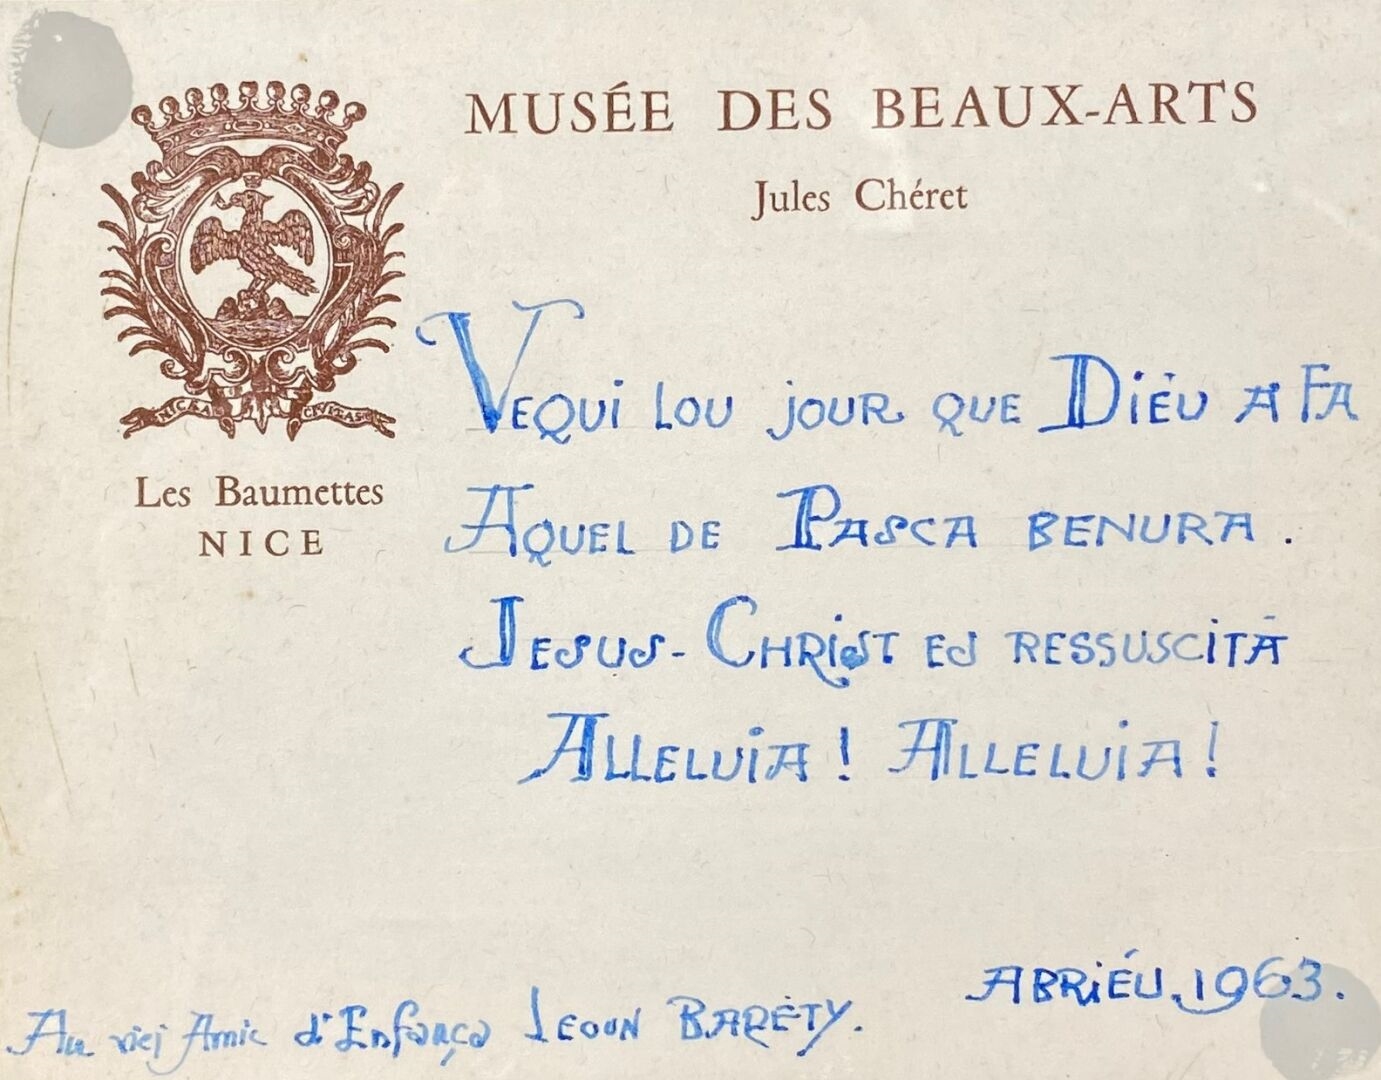 MUSÉE DES BEAUX-ARTS
Jules Chéret
NICÆA CIVITAS
Les Baumettes
NICE
VEQUI LOU JOUR QUE DIÉU A FA
AQUEL DE PASCA BENURA.
JESUS-CHRIST ES RESSUSCITÀ
ALLELUIA! ALLELUIA!
ABRIÉU. 1963.
Au viei Amic d'Enfança LEOUN BARÉTY.